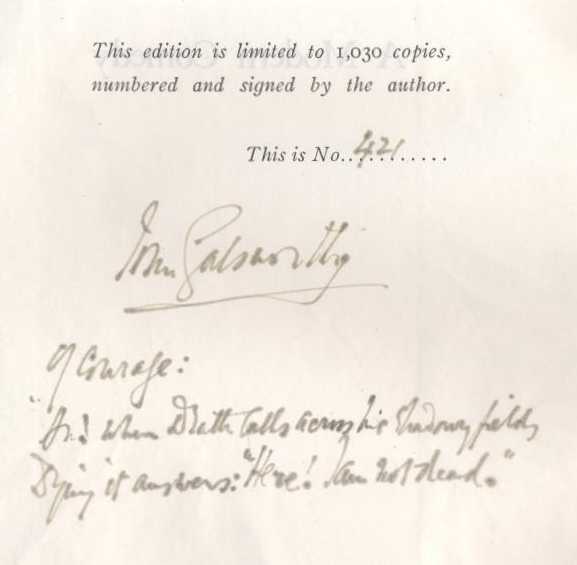 This edition is limited to 1,030 copies,
numbered and signed by the author.
This is No. 421
John Galsworthy
Of Courage:
"For! when Death calls across his shadowy fields
Dying it answers: "Here! I am not dead."